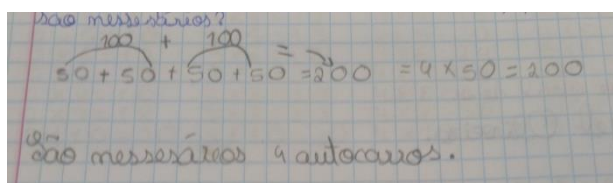 são messesários?
100 + 100 =
50 + 50 + 50 + 50 = 200 = 4 x 50 = 200
São messesários 4 autocarros.